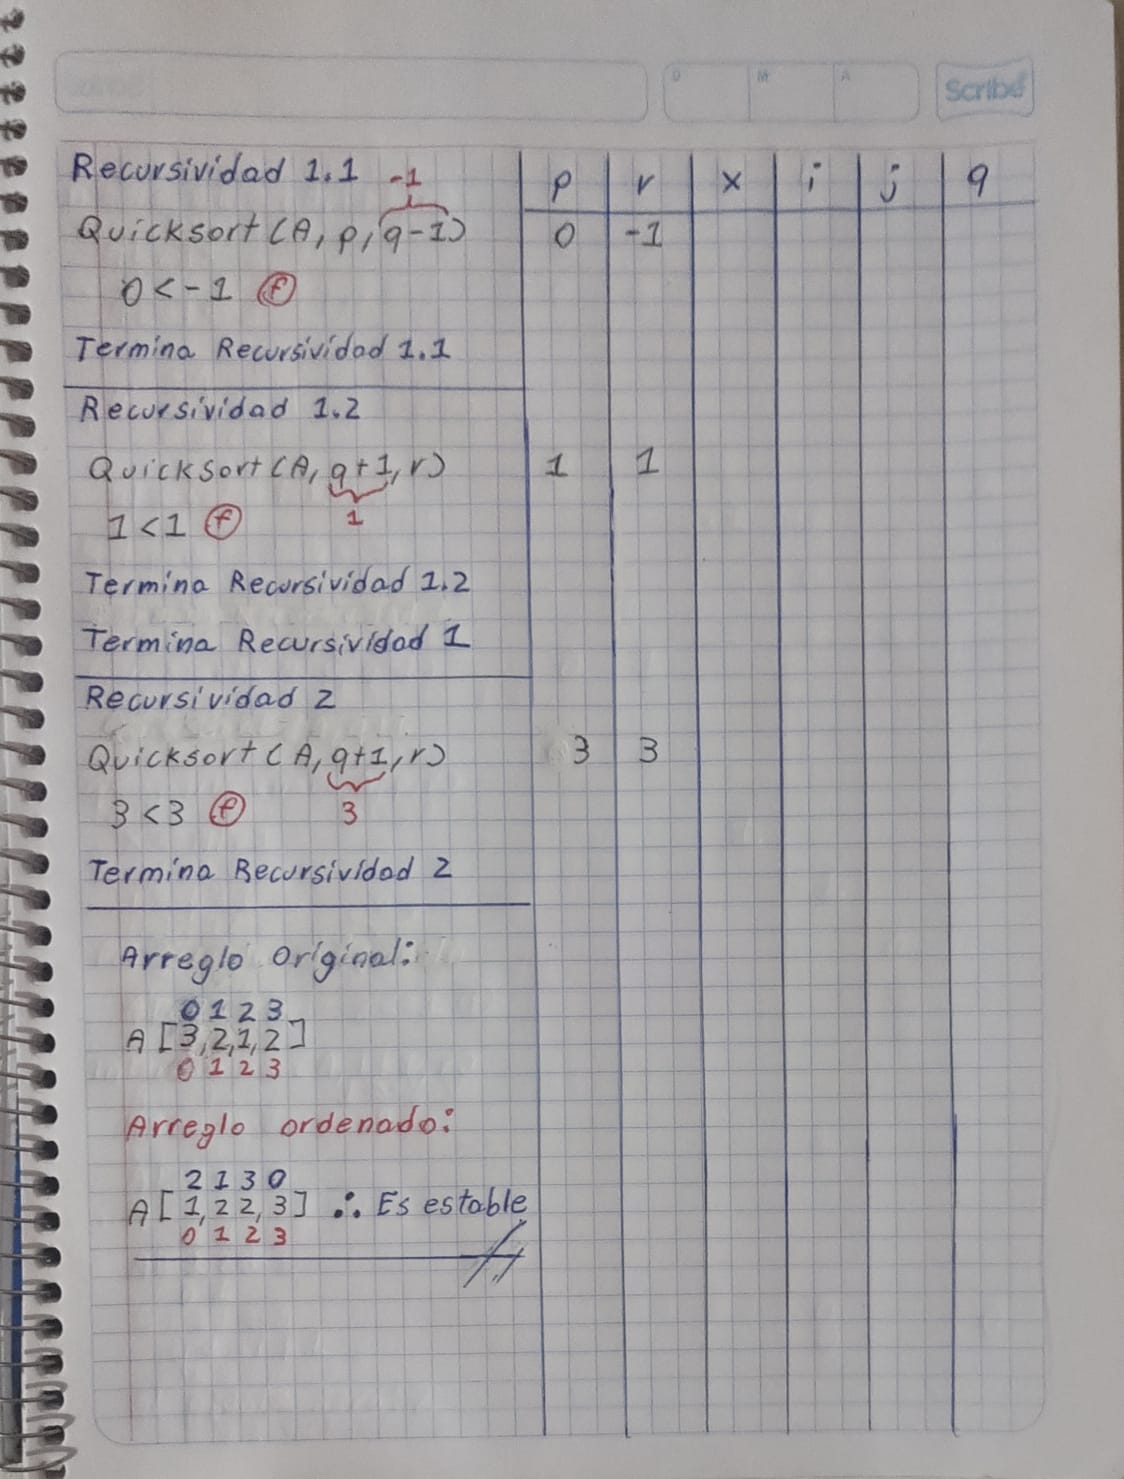 D M A Scribe
Recursividad 1.1 -1 p r x i j q
Quicksort(A, p, q-1) 0 -1
0<-1 f
Termina Recursividad 1.1
Recursividad 1.2
Quicksort(A, q+1, r) 1 1
1<1 f 1
Termina Recursividad 1.2
Termina Recursividad 1
Recursividad 2
Quicksort(A, q+1, r) 3 3
3<3 f 3
Termina Recursividad 2
Arreglo Original:
0 1 2 3
A [3,2,1,2]
0 1 2 3
Arreglo ordenado:
2 1 3 0
A [1,2 2,3] ∴ Es estable
0 1 2 3